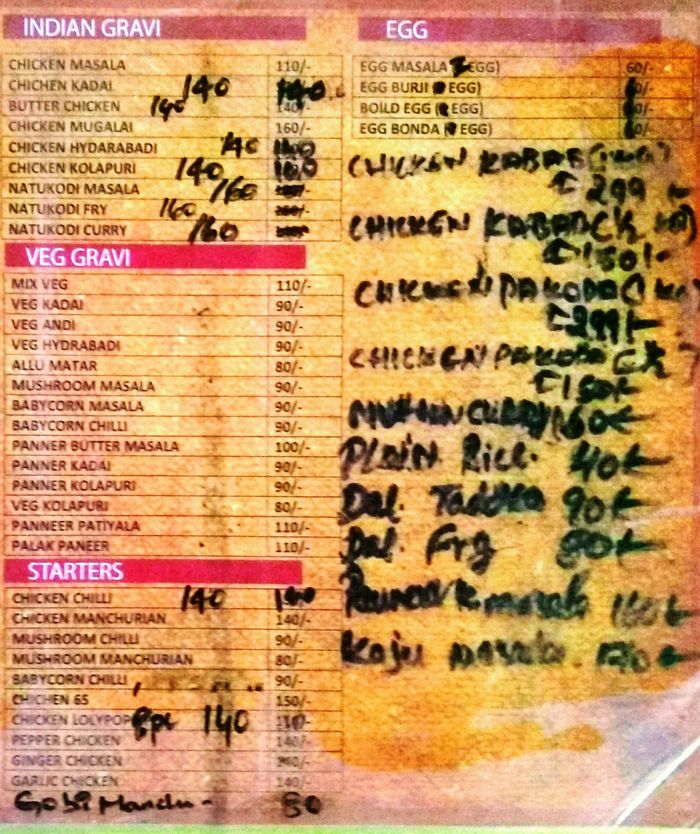 INDIAN GRAVI
CHICKEN MASALA 110/-
CHICHEN KADAI 140 140
BUTTER CHICKEN 140 140/-
CHICKEN MUGALAI 160/-
CHICKEN HYDARABADI 140
CHICKEN KOLAPURI 140
NATUKODI MASALA 160
NATUKODI FRY 160
NATUKODI CURRY 160
VEG GRAVI
MIX VEG 110/-
VEG KADAI 90/-
VEG ANDI 90/-
VEG HYDRABADI 90/-
ALLU MATAR 80/-
MUSHROOM MASALA 90/-
BABYCORN MASALA 90/-
BABYCORN CHILLI 90/-
PANNER BUTTER MASALA 100/-
PANNER KADAI 90/-
PANNER KOLAPURI 90/-
VEG KOLAPURI 80/-
PANNEER PATIYALA 110/-
PALAK PANEER 110/-
STARTERS
CHICKEN CHILLI 140 140
CHICKEN MANCHURIAN 140/-
MUSHROOM CHILLI 90/-
MUSHROOM MANCHURIAN 80/-
BABYCORN CHILLI 90/-
CHICHEN 65 150/-
CHICKEN LOLYPOP 140
PEPPER CHICKEN 140/-
GINGER CHICKEN
GARLIC CHICKEN 140/-
Gobi Manchu - 80
EGG
EGG MASALA EGG) 60/-
EGG BURJI EGG)
BOILD EGG EGG)
EGG BONDA EGG)
CHICKEN KABAB
299
CHICKEN KABAB
150/-
CHICKEN PAKODA
299/-
CHICKEN PAKODA
150/-
MUTTON CURRY 160/-
Plain Rice. 40/-
Dal. Tadka 90/-
Dal. Fry 80/-
masala 160/-
Kaju masala. 170/-